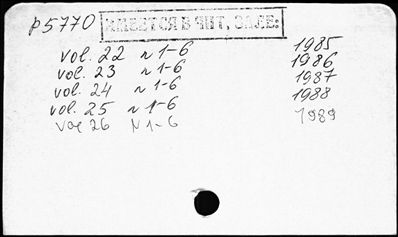 p5770 ИМЕЕТСЯ В ЧИТ. ЗАЛЕ.
vol. 22 n 1-6 1985
vol. 23 n 1-6 1986
vol. 24 n 1-6 1987
vol. 25 n 1-6 1988
vol 26 N 1-6 1989